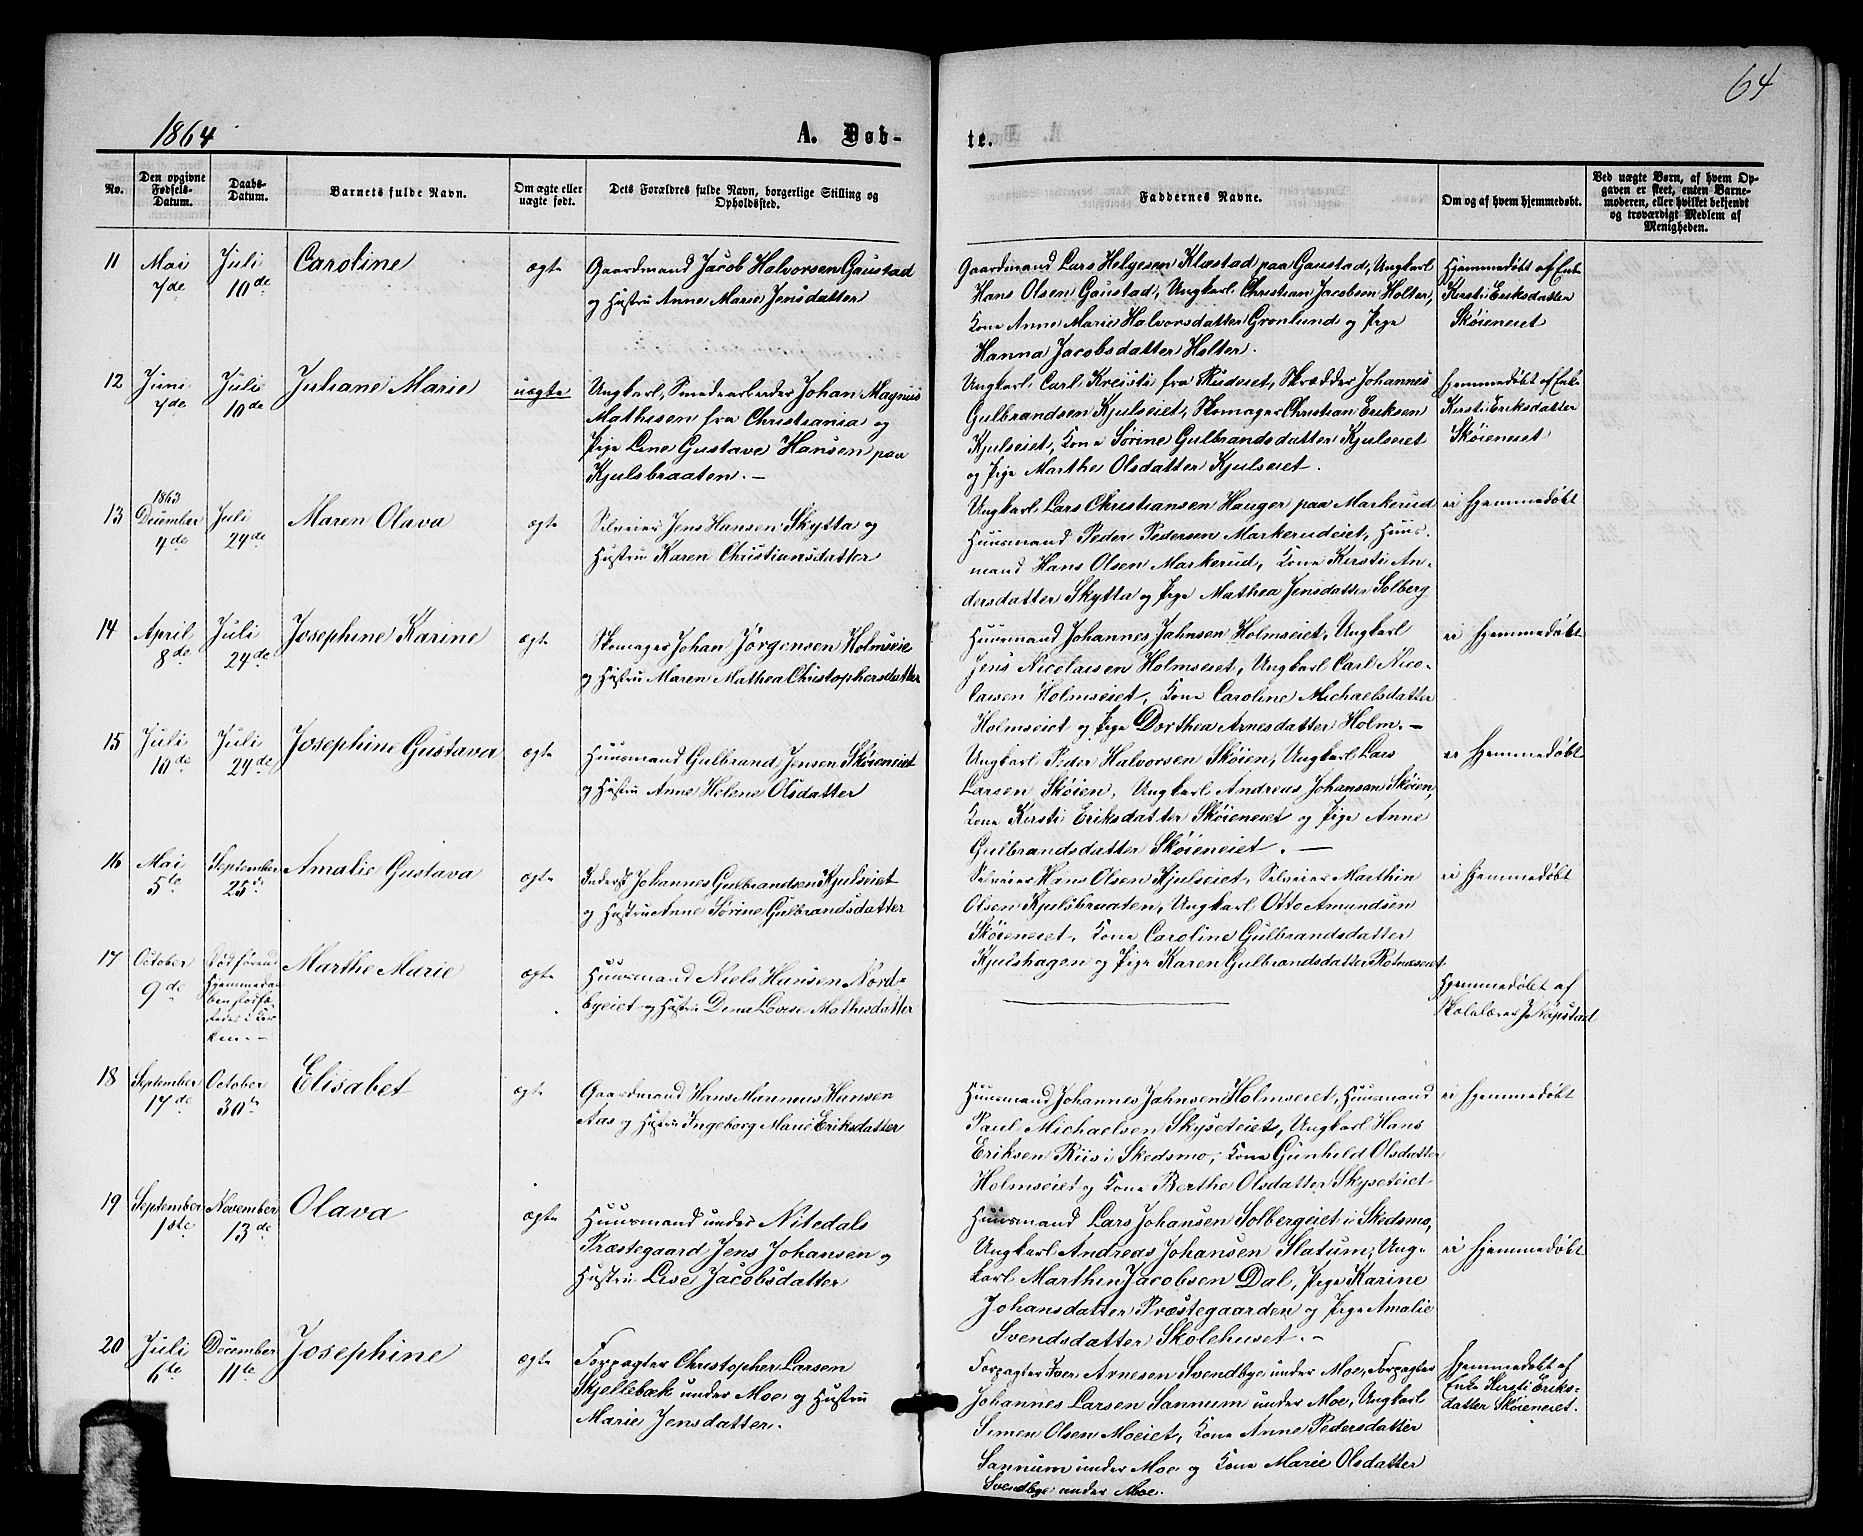 64
1864
A. Døb-
te.
No.
Den opgivne Fødsels-Datum.
Daabs-Datum.
Barnets fulde Navn.
Om ægte eller uægte født.
Dets Forældres fulde Navn, borgerlige Stilling og Opholdssted.
Faddernes Navne.
Om og af hvem hjemmedøbt.
Ved uægte Børn, af hvem Opgaven er skeet, enten Barnemoderen, eller hvilket bekjendt og troværdigt Medlem af Menigheden.
11
Mai
7de
Juli
10de
Caroline
ægte
Gaardmand Jacob Halvorsen Gaustad
og Hustru Anne Marie Jensdatter
Gaardmand Lars Helgesen Klæstad paa Gaustad, Ungkarl
Hans Olsen Gaustad, Ungkarl Christian Jacobsen Holter,
Kone Anne Marie Halvorsdatter Grønlund og Pige
Hanna Jacobsdatter Holter.
Hjemmedøbt af Enke
Kersti Eriksdatter
Skøieneiet
12
Juni
7de
Juli
10de
Juliane Marie
uægte
Ungkarl, Smedearbeider Johan Magnus
Mathisen fra Christiania og
Pige Line Gustave Hansen paa
Kjulsbraaten.—
Ungkarl Carl fra Rudseiet, Skrædder Johannes
Gulbrandsen Kjulseiet, Skomager Christian Eriksen
Kjulseiet, Kone Sørine Gulbrandsdatter Kjulseiet
og Pige Marthe Olsdatter Kjulseiet.
Hjemmedøbt af Enke
Kersti Eriksdatter
Skøieneiet
13
1863
December
4de
Juli
24de
Maren Olava
ægte
Selveier Jens Hansen Skytta og
Hustru Karen Christiansdatter
Ungkarl Lars Christiansen Hauger paa Markerud
Huusmand Peder Pedersen Markerudeiet, Huus-
mand Hans Olsen Markerud, Kone Kersti An-
dersdatter Skytta og Pige Mathea Jensdatter Solberg
ei Hjemmedøbt
14
April
8de
Juli
24de
Josephine Karine
ægte
Skomager Johan Jørgensen Holmseie
og Hustru Maren Mathea Christophersdatter
Huusmand Johannes Jahnsen Holmseiet, Ungkarl
Jens Nicolaisen Holmseiet, Ungkarl Carl Nico-
laisen Holmseiet, Kone Caroline Michaelsdatter
Holmseiet og Pige Dorthea Arnesdatter Holm.—
ei Hjemmedøbt
15
Juli
10de
Juli
24de
Josephine Gustava
ægte
Huusmand Gulbrand Jensen Skøieneiet
og Hustru Anne Helene Olsdatter
Ungkarl Peder Halvorsen Skøien, Ungkarl Lars
Larsen Skøien, Ungkarl Andreas Johansen Skøien,
Kone Kersti Eriksdatter Skøieneiet og Pige Anne
Gulbrandsdatter Skøieneiet.—
ei Hjemmedøbt
16
Mai
5te
September
25de
Amalie Gustava
ægte
Inderst Johannes Gulbrandsen Kjulseiet
og Hustru Anne Sørine Gulbrandsdatter
Selveier Hans Olsen Kjulseiet, Selveier Marthin
Olsen Kjulsbraaten, Ungkarl Otto Amundsen
Skøieneiet, Kone Caroline Gulbrandsdatter
Kjulshagen og Pige Karen Gulbrandsdatter Rotnæseiet
ei Hjemmedøbt
17
October
9de
Død førend
Hjemmedaa-
ben stadfæ-
stedes i Kir-
ken.—
Marthe Marie
ægte
Huusmand Niels Hansen Nord-
byeiet og Hustru Dina Lovise Mathisdatter
Hjemmedøbt af
Skolelærer J. Nøpstad
18
September
17de
October
30te
Elisabet
ægte
Gaardmand Hans Magnus Hansen
Aas og Hustru Ingeborg Marie Eriksdatter
Huusmand Johannes Jahnsen Holmseiet, Huusmand
Paul Michaelsen Skyseteiet, Ungkarl Hans
Eriksen Riis i Skedsmo, Kone Gunhild Olsdatter
Holmseiet og Kone Berthe Olsdatter Skyseteiet
ei Hjemmedøbt
19
September
1ste
November
13de
Olava
ægte
Huusmand under Nitedals
Præstegaard Jens Johansen og
Hustru Lise Jacobsdatter
Huusmand Lars Johansen Solbergeiet i Skedsmo,
Ungkarl Andreas Johansen Slatum, Ung-
karl Marthin Jacobsen Dal, Pige Karine
Johansdatter Præstegaarden og Pige Amalie
Svendsdatter Skolehuset.—
ei Hjemmedøbt
20
Juli
6te
December
11te
Josephine
ægte
Forpagter Christopher Larsen
Skjellebæk under Moe og Hustru
Marie Jensdatter.
Forpagter Iver Arnesen Svendbye under Moe, Forpagter
Johannes Larsen Sannum under Moe, Ungkarl
Simen Olsen Moeiet, Kone Anne Pedersdatter
Sannum under Moe og Kone Marie Olsdatter
Svendbye under Moe.
Hjemmedøbt af
Enke Kersti Eriks-
datter Skøieneiet.